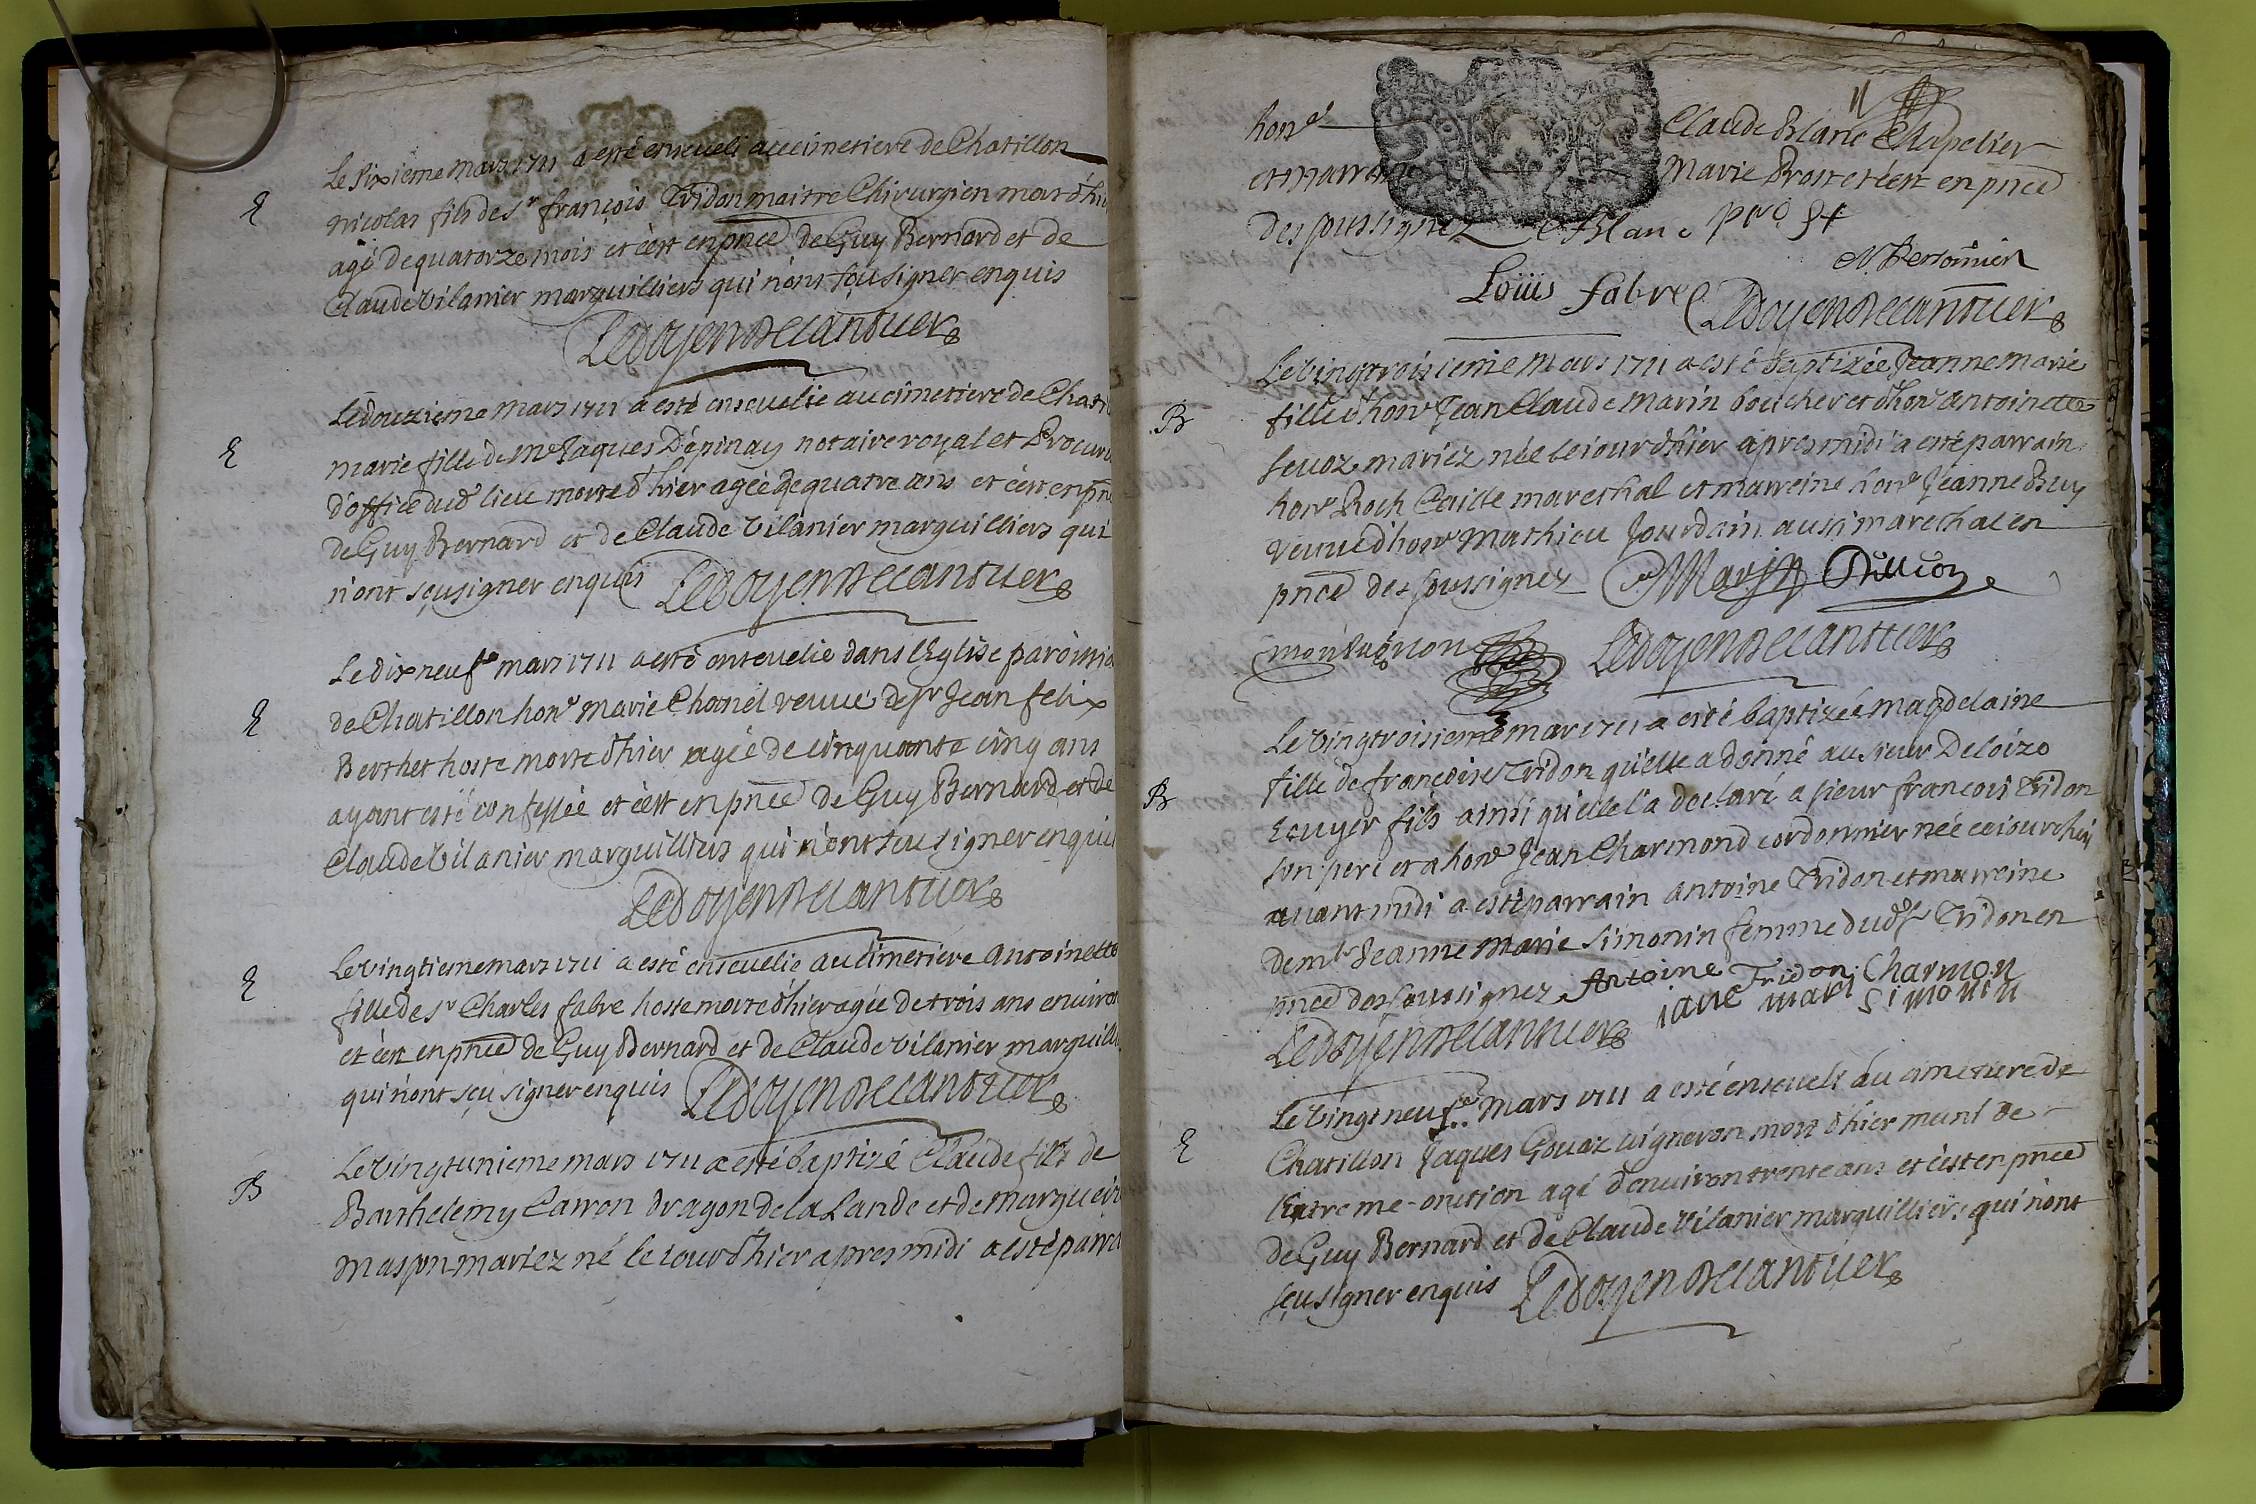 Le sixieme mars 1711 a esté enseveli au cimetiere de Chatillon
E
nicolas fils de Sr françois Tridon maitre Chirurgien mort d'hier
agé de quatorze mois et c'est en pnce de Guy Bernard et de
Claude Vilanier marguilliers qui n'ont sçu signer enquis
Ledoyen De cantuer
Le douzieme mars 1711 a esté ensevelie au cimetiere de Chati
E
marie fille de Me Jaques Dépinay notaire royal et Procure
d'office dud lieu morte d'hier agée de quatre ans et c'est en pn
de Guy Bernard et de Claude Vilanier marguilliers qui
n'ont sçu signer enquis Ledoyen De cantuer
Le dix neufe mars 1711 a esté ensevelie dans l'Eglise paroissia
E
de Chatillon hone marie Chanel veuve de sr Jean felix
Berthet hoste morte d'hier agée de cinquante cinq ans
ayant esté confessée et c'est en pnce de Guy Bernard et de
Claude Vilanier marguilliers qui n'ont sçu signer enquis
Ledoyen De cantuer
Le vingtieme mars 1711 a esté ensevelie au cimetiere antoinette
E
fille de sr Charles fabre hoste morte d'hier agée de trois ans environ
et c'est en pnce de Guy Bernard et de Claude Vilanier marguilli
qui n'ont sçu signer enquis Ledoyen De cantuer
Le vingt unieme mars 1711 a esté baptizé Claude fils de
B
Barthelemy Carron dragon de la Lande et de marguerit
maspn mariez né le iour d'hier apres midi a esté parra
11
hone Claude Blanc Chapelier
et marraine Marie Prost et c'est en pnce
des soussignez C Blanc prost
Personnier
Loüis fabre Ledoyen De cantuer
Le vingt troisieme Mars 1711 a esté baptizée Jeanne Marie
B
fille d'hone Jean Claude Marin boucher et d'hone antoinette
sevoz mariez née le iour d'hier apres midi a esté parrain
hone Roch Caille mareschal et marreine hone Jeanne Buy
veuve d'hone Mathieu Jourdain aussi mareschal en
pnce des soussignez Marin
Ledoyen De cantuer
Le vingt troisieme mars 1711 a esté baptizée Magdelaine
B
fille de françoise Tridon qu'elle a donné au sieur Deloizo
Ecuyer fils ainsi qu'elle l'a declaré a sieur françois Tridon
son pere et a hone Jean Charmond cordonnier née ce iourdhuy
avant midi a esté parrain antoine Tridon et marreine
demlle Jeanne Marie Simonin femme dud sr Tridon en
pnce des soussignez Antoine Tridon Charmon
iane mari Simonin
Ledoyen De cantuer
Le vingt neufe Mars 1711 a esté enseveli au cimetiere de
E
Chatillon Jaques Govoz vigneron mort d'hier muni de
l'Extreme-onction agé d'environ trente ans et c'est en pnce
de Guy Bernard et de Claude Vilanier marguilliers qui n'ont
sçu signer enquis Ledoyen De cantuer